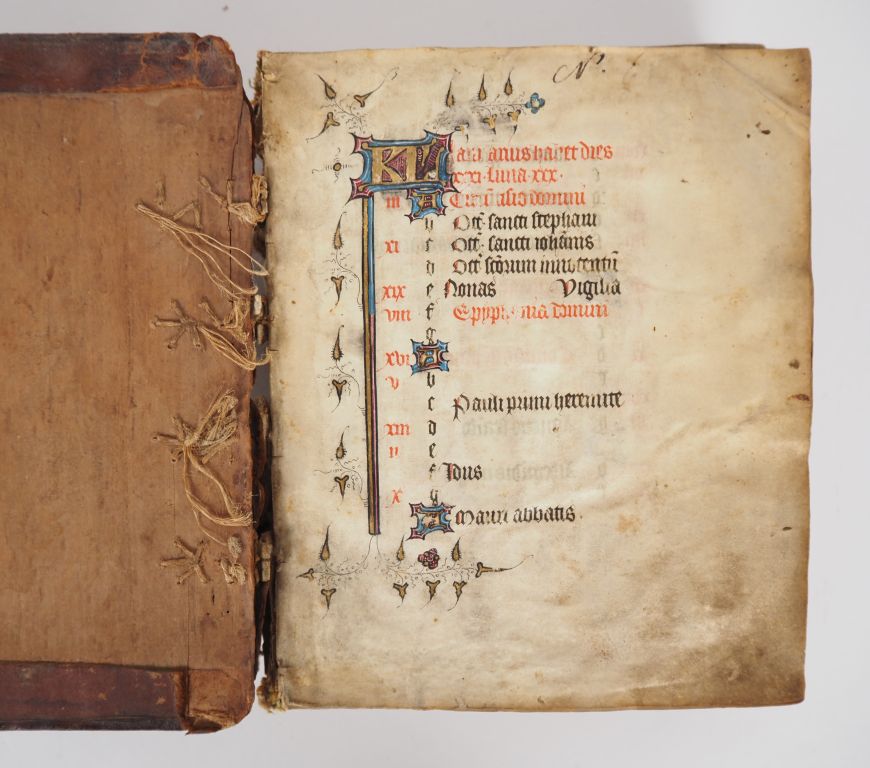 KL Januarius habet dies
xxxi. luna xxx.
iii A Circūcisio domini
b Oct̄. sancti stephani
xi c Oct̄. sancti iohānis
d Oct̄ scōrum innocentū
xix e Nonas Vigilia
viii f Epyphania domini
g
xvi A
v b
c Pauli primi heremite
xiii d
ii e
f Idus
x g
A Mauri abbatis